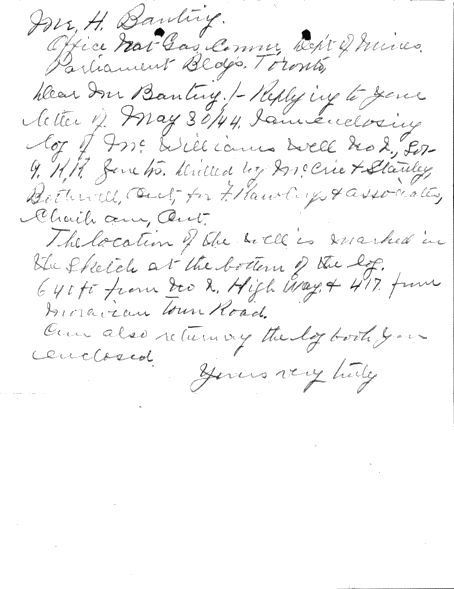 Mr. H. Banting.
Office Nat Gas Comm, Dept of Mines.
Parliament Bldgs. Toronto,
Dear Mr Banting:- Replying to your
letter of May 30/44. I am enclosing
log of Mc Williams Well No 2, Lot
9. Drilled by McCrie & Stanley,
Bothwell, Ont, for & associates,
Chatham, Ont.
The location of the well is marked in
the sketch at the bottom of the log.
640 ft from No 2. High Way & 417 from
Moravian Town Road.
Am also returning the log book you
enclosed.
Yours very truly